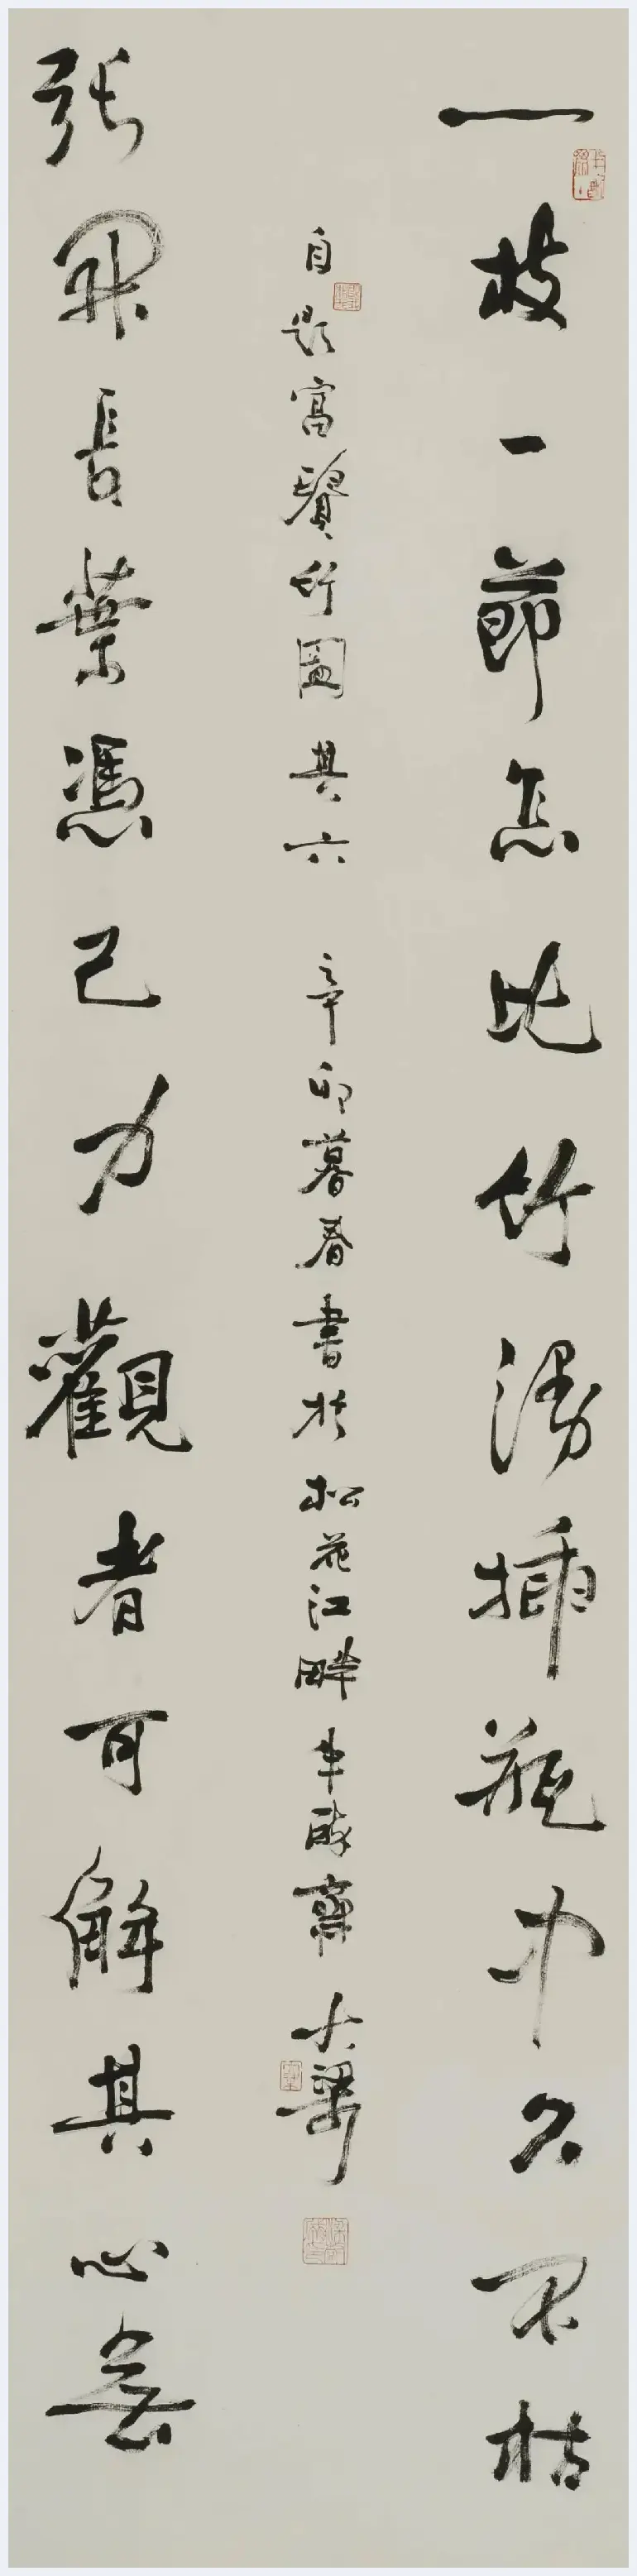 一枝一節怎比竹插瓶中久不枯
張開長葉憑己力觀者可解其心
自題富賢竹圖其六 辛卯暮春書於松花江畔半醉齋 大梁